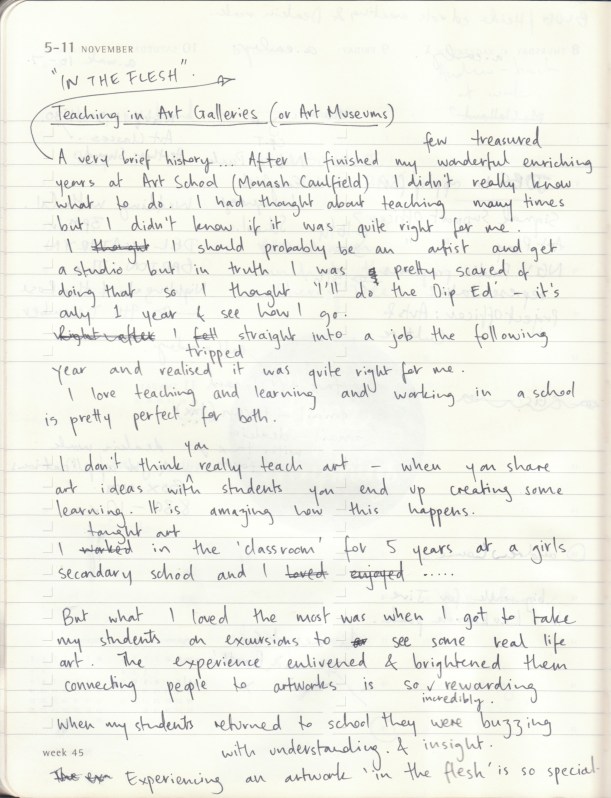 5-11 NOVEMBER
"IN THE FLESH".
Teaching in Art Galleries (or Art Museums)
few treasured
A very brief history... After I finished my wonderful enriching
years at Art School (Monash Caulfield) I didn't really know
what to do. I had thought about teaching many times
but I didn't know if it was quite right for me.
I thought I should probably be an artist and get
a studio but in truth I was pretty scared of
doing that so I thought 'I'll do the Dip Ed' – it's
only 1 year & see how I go.
Right after I fell straight into a job the following
tripped
year and realised it was quite right for me.
I love teaching and learning and working in a school
is pretty perfect for both.
you
I don't think really teach art – when you share
art ideas with students you end up creating some
learning. It is amazing how this happens.
taught art
I worked in the 'classroom' for 5 years at a girls
secondary school and I loved enjoyed .....
But what I loved the most was when I got to take
my students on excursions to see some real life
art. The experience enlivened & brightened them
connecting people to artworks is so rewarding
incredibly.
when my students returned to school they were buzzing
week 45
with understanding. & insight.
The ex Experiencing an artwork 'in the flesh' is so special.